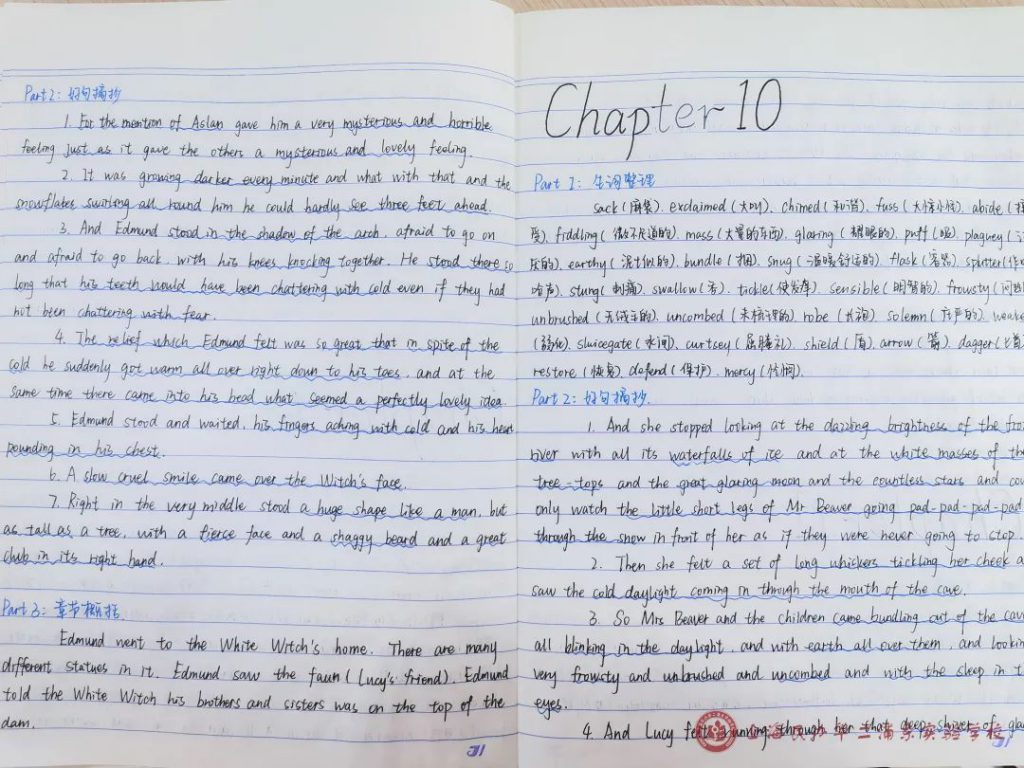 Part 2: 好句摘抄
1. For the mention of Aslan gave him a very mysterious and horrible
feeling just as it gave the others a mysterious and lovely feeling.
2. It was growing darker every minute and what with that and the
snowflakes swirling all round him he could hardly see three feet ahead.
3. And Edmund stood in the shadow of the arch, afraid to go on
and afraid to go back, with his knees knocking together. He stood there so
long that his teeth would have been chattering with cold even if they had
not been chattering with fear.
4. The relief which Edmund felt was so great that in spite of the
cold he suddenly got warm all over right down to his toes, and at the
same time there came into his head what seemed a perfectly lovely idea.
5. Edmund stood and waited, his fingers aching with cold and his heart
pounding in his chest.
6. A slow cruel smile came over the Witch's face.
7. Right in the very middle stood a huge shape like a man, but
as tall as a tree, with a fierce face and a shaggy beard and a great
club in its right hand.
Part 3: 章节概括
Edmund went to the White Witch's home. There are many
different statues in it. Edmund saw the faun (Lucy's friend). Edmund
told the White Witch his brothers and sisters was on the top of the
dam.
Chapter 10
Part 1: 生词整理
sack (麻袋). exclaimed (大叫). chimed (和谐). fuss (大惊小怪). abide
fiddling (微不足道的). mass (大量的东西). glaring (耀眼的). puff (喘). plaguey
的). earthy (泥土似的). bundle (捆). snug (温暖舒适的). flask (容器). splutter
啥声). stung (刺痛). swallow (吞). tickle (使发痒). sensible (明智的). frowsty
unbrushed (无绒毛的). uncombed (未梳理的). robe (长袍). solemn (庄严的).
sluicegate (水闸). curtsey (屈膝礼). shield (盾). arrow (箭). dagger
restore (恢复). defend (保护). mercy (怜悯).
Part 2: 好句摘抄.
1. And she stopped looking at the dazzling brightness of the
river with all its waterfalls of ice and at the white masses of the
tree-tops and the great glaring moon and the countless stars and
only watch the little short legs of Mr Beaver going pad-pad-pad-pad
through the snow in front of her as if they were never going to stop.
2. Then she felt a set of long whiskers tickling her cheek
saw the cold daylight coming in through the mouth of the cave.
3. So Mrs Beaver and the children came bundling out of the cave
all blinking in the daylight, and with earth all over them, and looking
very frowsty and unbrushed and uncombed and with the sleep in
eyes.
4. And Lucy felt running through her that deep shiver of